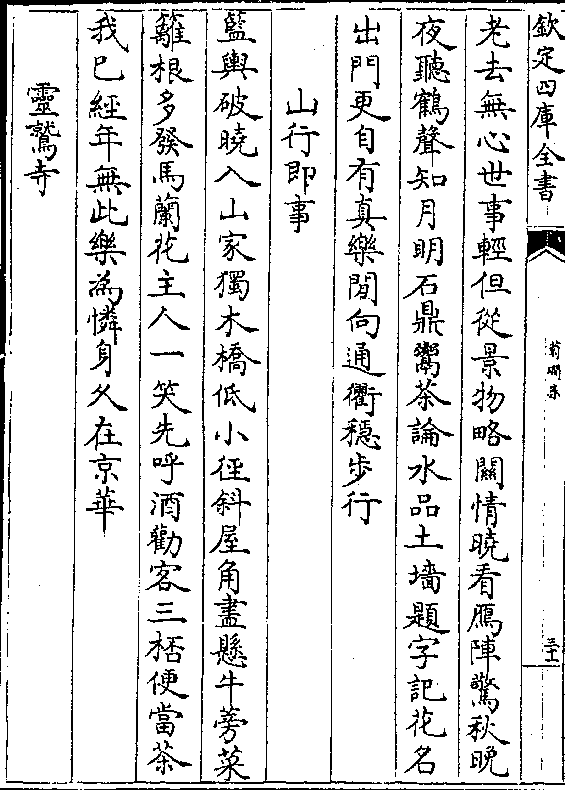 欽定四庫全書
菊磵集
老去無心世事輕但從景物略關情曉看鴈陣驚秋晚
夜聽鶴聲知月明石鼎鬻茶論水品土墻題字記花名
出門更自有真樂閒向通衢穩步行
山行即事
籃輿破曉入山家獨木橋低小徑斜屋角盡懸牛蒡菜
籬根多發馬蘭花主人一笑先呼酒勸客三桮便當茶
我已經年無此樂為憐身久在京華
靈鷲寺